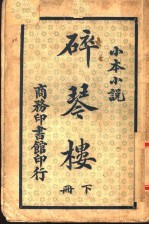 小本小説
碎琴樓
下冊
商務印書館印行